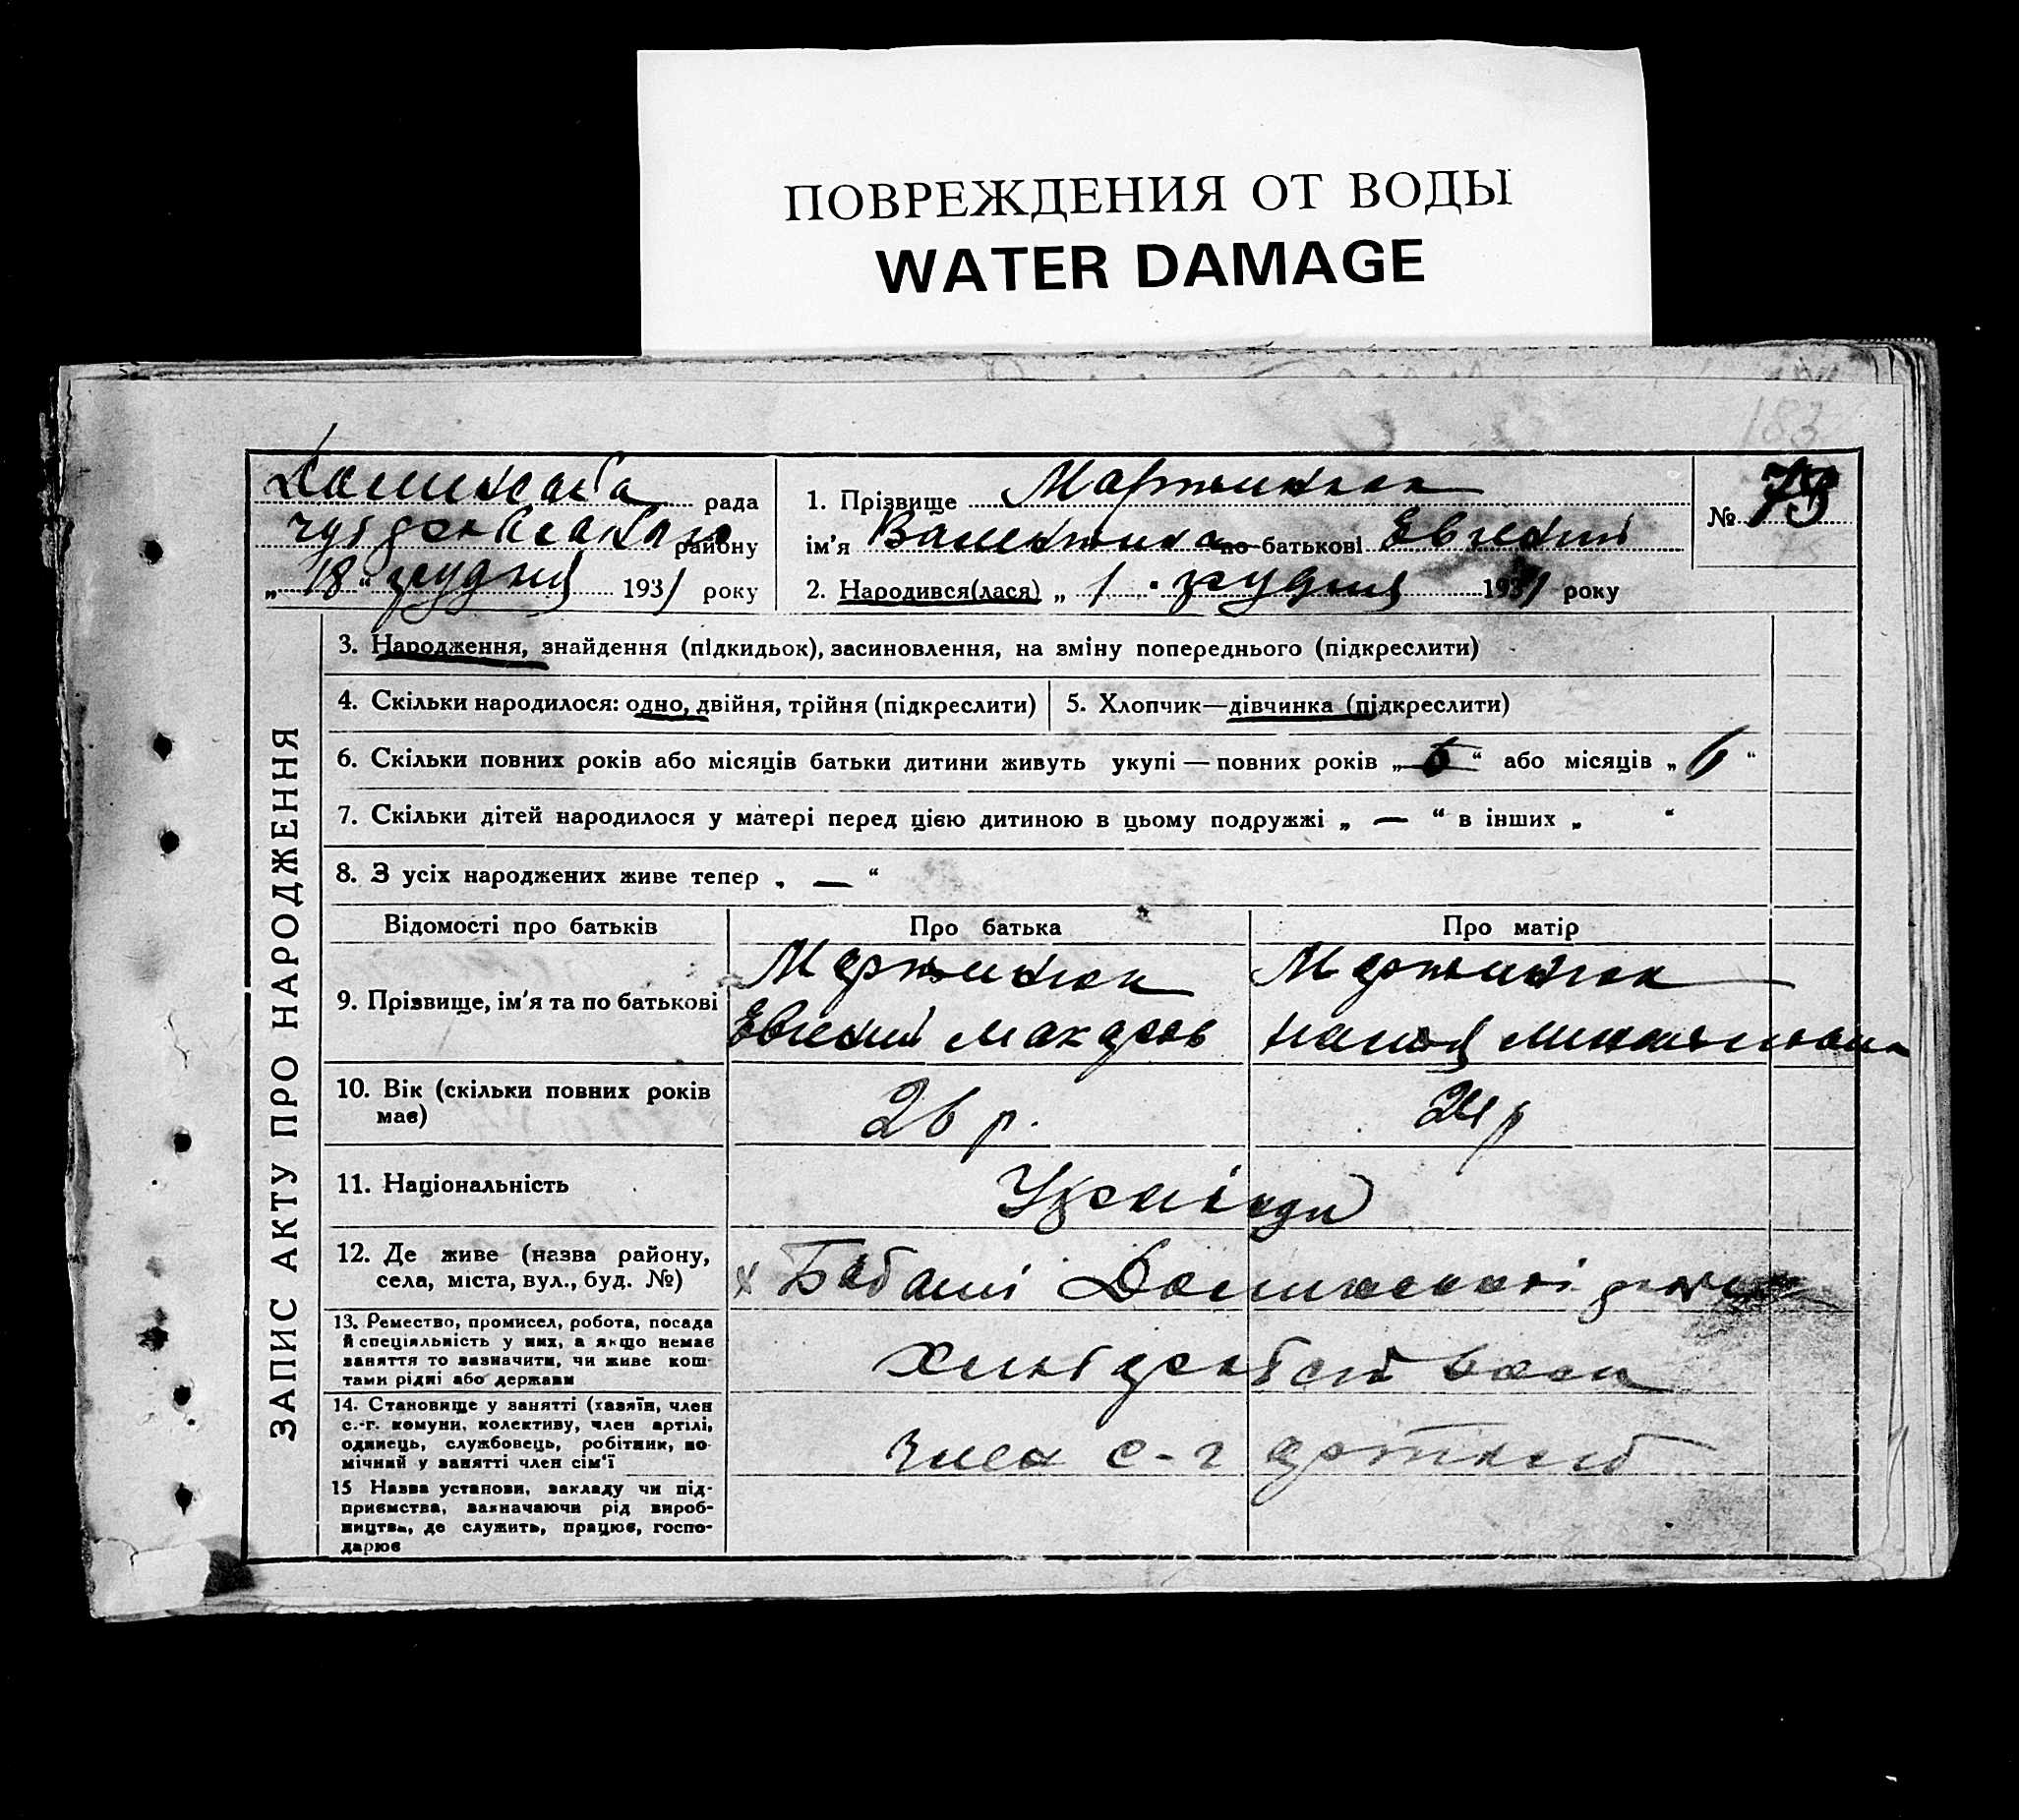 ПОВРЕЖДЕНИЯ ОТ ВОДЫ
WATER DAMAGE
183
рада
району
„18“ грудня 1931 року
1. Прізвище Мартинюк
ім'я Валентина по-батькові Евгений
№ 75
2. Народився(лася) „1“ грудня 1931 року
ЗАПИС АКТУ ПРО НАРОДЖЕННЯ
3. Народження, знайдення (підкидьок), засиновлення, на зміну попереднього (підкреслити)
4. Скільки народилося: одно, двійня, трійня (підкреслити)
5. Хлопчик—дівчинка (підкреслити)
6. Скільки повних років або місяців батьки дитини живуть укупі — повних років „ “ або місяців „6“
7. Скільки дітей народилося у матері перед цією дитиною в цьому подружжі „ — “ в інших „ “
8. З усіх народжених живе тепер „ — “
Відомості про батьків
Про батька
Про матір
9. Прізвище, ім'я та по батькові
Мартинюк
Евгений
Мартинюк
10. Вік (скільки повних років має)
26 р.
24 р
11. Національність
Українци
12. Де живе (назва району, села, міста, вул., буд. №)
13. Ремество, промисел, робота, посада й спеціяльність у них, а якщо немає заняття то зазначити, чи живе коштами рідні або держави
Хлібороб
14. Становище у занятті (хазяїн, член с.-г. комуни, колективу, член артілі, одинець, службовець, робітник, помічний у занятті член сім'ї
член с-г артілі
15 Назва установи, закладу чи підприємства, зазначаючи рід виробництва, де служить, працює, господарює